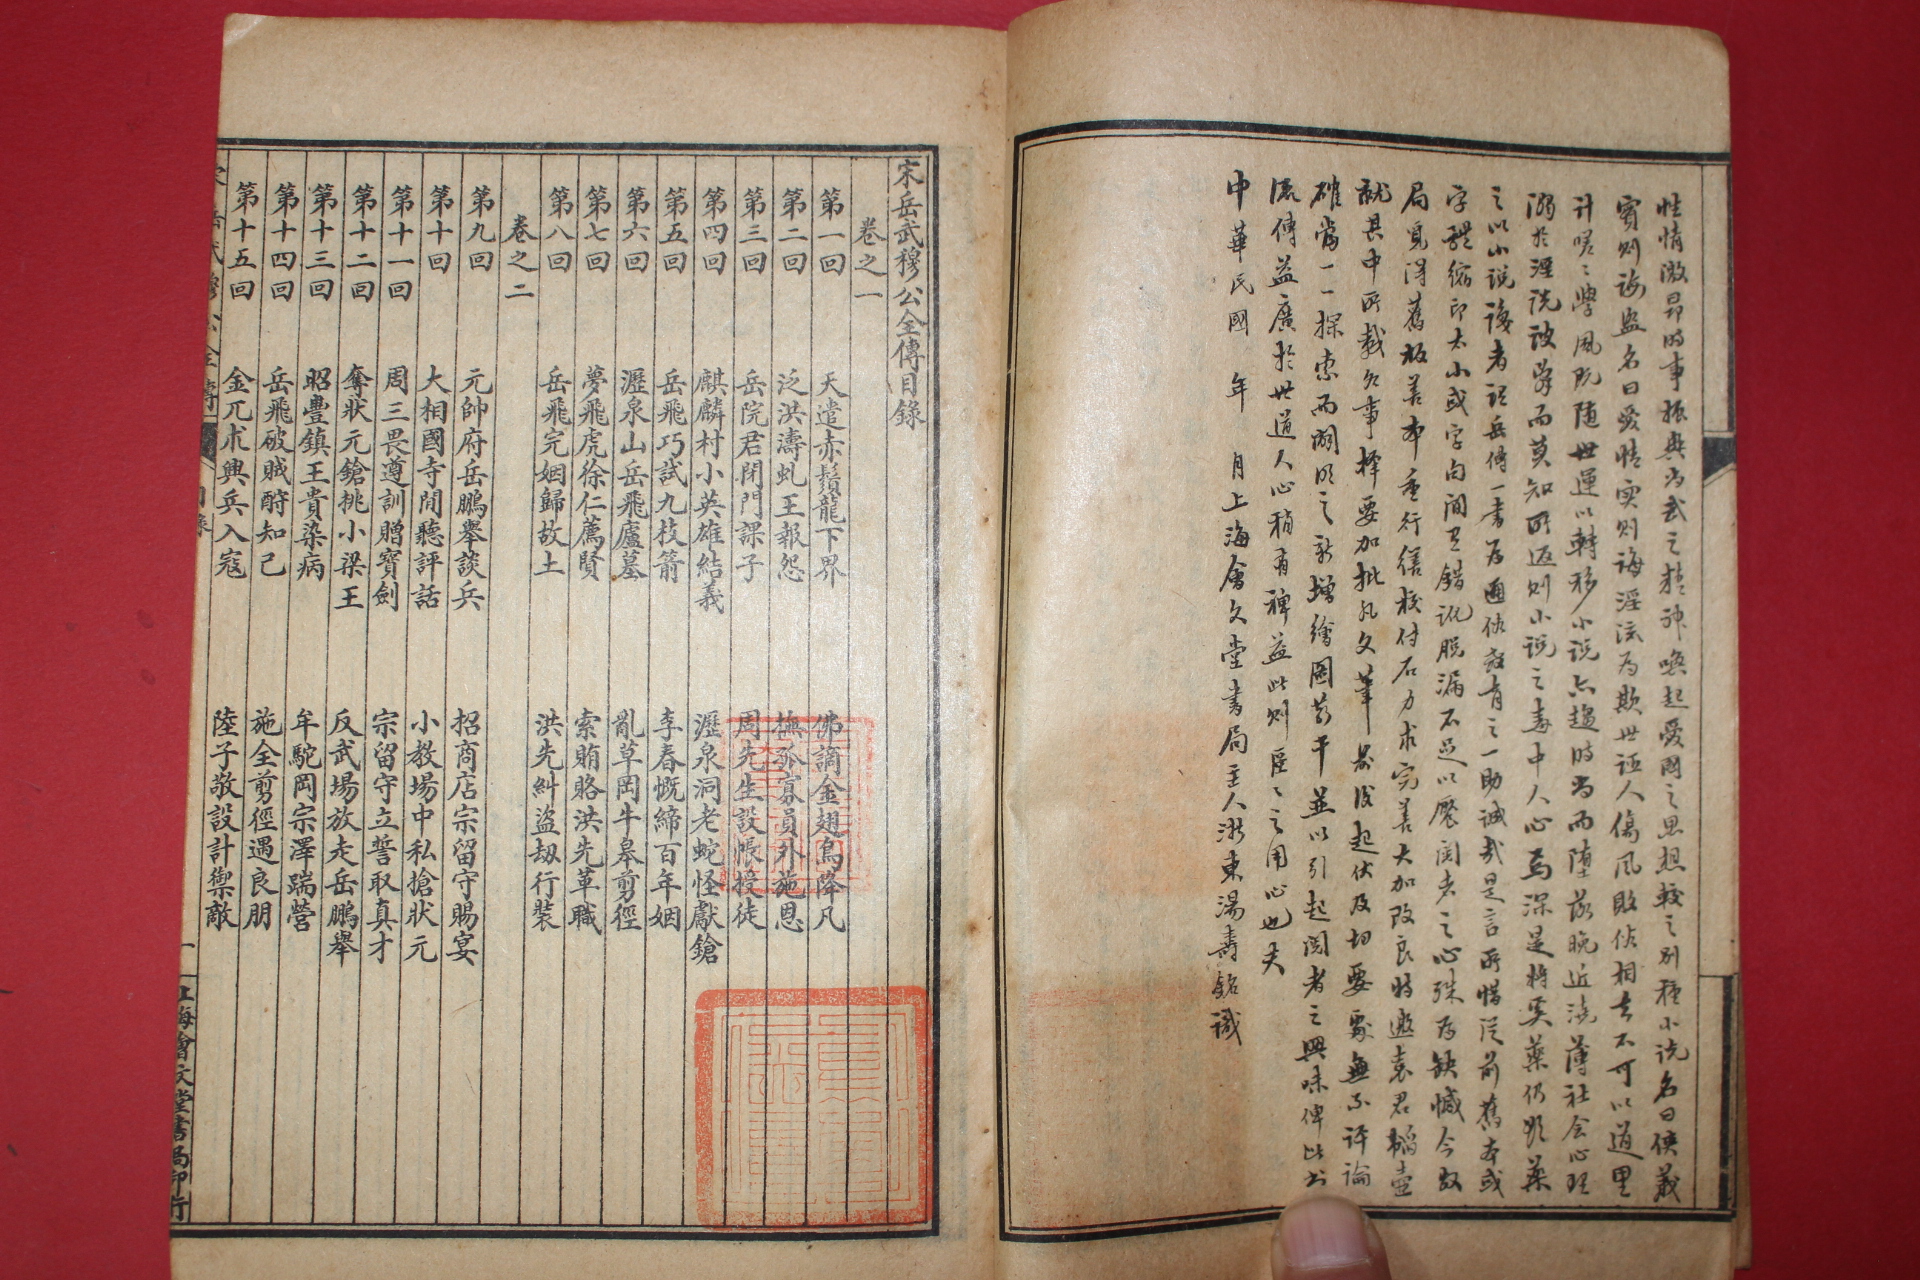 性情激昂時事振興尚武之精神喚起愛國之思想較之別種小說名曰俠義
實則誨盜名曰愛情實則誨淫流為欺世誣人傷風敗俗相去不可以道里
計嗟〻學風既隨世運以轉移小說亦趨時尚而墮落晚近澆薄社會心理
溺於淫說詖辭而莫知所返則小說之毒中人心為深是將奚藥仍欲藥
之以小說護者說岳傳一書為通俗教育之一助誠哉是言所惜從前舊本或
字體縮印太小或字句間有錯訛脫漏不足以饜閱者之心殊為缺憾今敝
局覓得舊板善本重行繕校付石力求完善大加改良特邀袁君韜壺
就其中所載各事擇要加批凡文筆前後起伏及切要處無不評論
確當一一探索而闡明之新增繪圖若干並以引起閱者之興味俾此書
流傳益廣於世道人心稍有裨益此則區〻之用心也夫
中華民國　年　月上海會文堂書局主人浙東湯壽銘識
宋岳武穆公全傳目錄
卷之一
第一回　天遣赤鬚龍下界　佛謫金翅鳥降凡
第二回　泛洪濤虬王報怨　撫孤寡員外施恩
第三回　岳院君閉門課子　周先生設帳授徒
第四回　麒麟村小英雄結義　瀝泉洞老蛇怪獻鎗
第五回　岳飛巧試九枝箭　李春慨締百年姻
第六回　瀝泉山岳飛廬墓　亂草岡牛皋剪徑
第七回　夢飛虎徐仁薦賢　索賄賂洪先革職
第八回　岳飛完姻歸故土　洪先糾盜劫行裝
卷之二
第九回　元帥府岳鵬舉談兵　招商店宗留守賜宴
第十回　大相國寺間聽評話　小教場中私搶狀元
第十一回　周三畏遵訓贈寶劍　宗留守立誓取真才
第十二回　奪狀元鎗挑小梁王　反武場放走岳鵬舉
第十三回　昭豐鎮王貴染病　牟駝岡宗澤踹營
第十四回　岳飛破賊酧知己　施全剪徑遇良朋
第十五回　金兀朮興兵入寇　陸子敬設計禦敵
宋岳武穆公全傳　目錄　一　上海會文堂書局印行